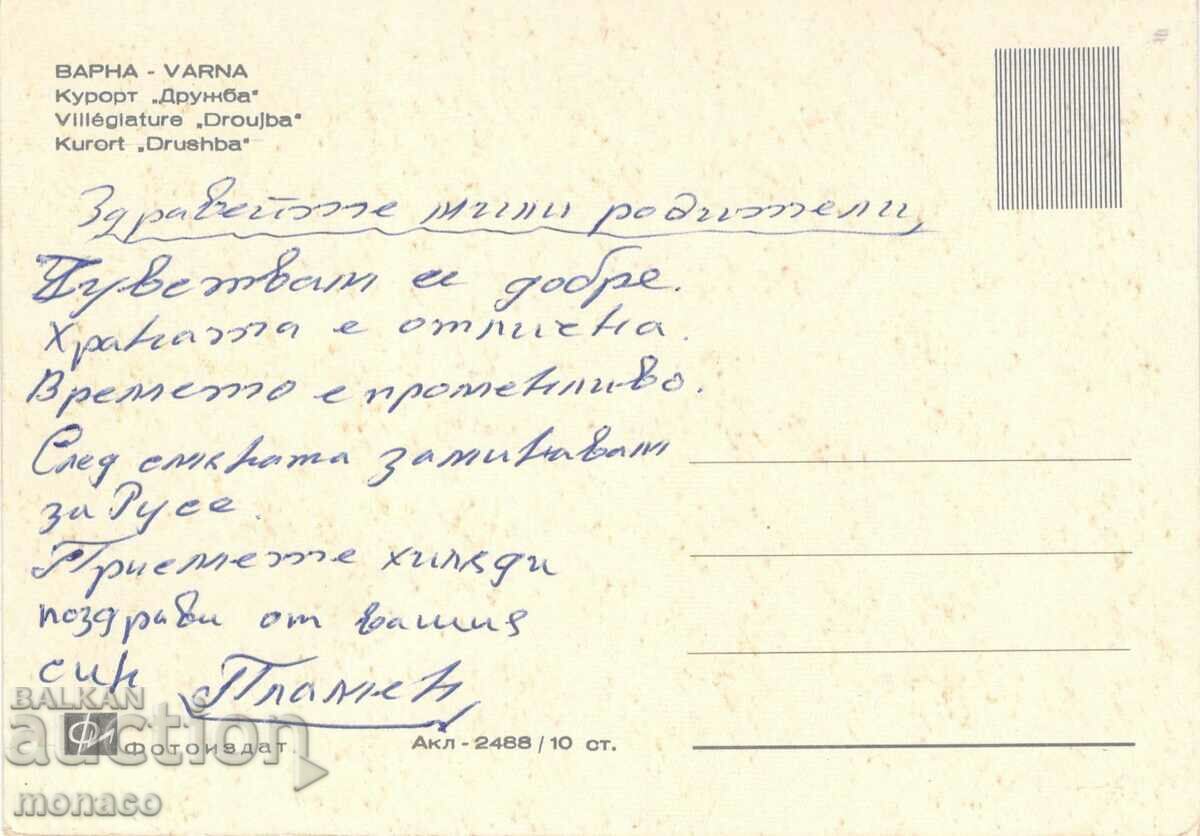 ВАРНА - VARNA
Курорт „Дружба"
Villégiature „Droujba"
Kurort „Drushba"
Здравейте мили родители,
Чувствам се добре.
Храната е отлична.
Времето е променливо.
След смяната заминавам
за Русе.
Приемете хиляди
поздрави от вашия
син Пламен
BALKAN
auction
ФИ Фотоиздат.
Акл-2488/10 ст.
monaco